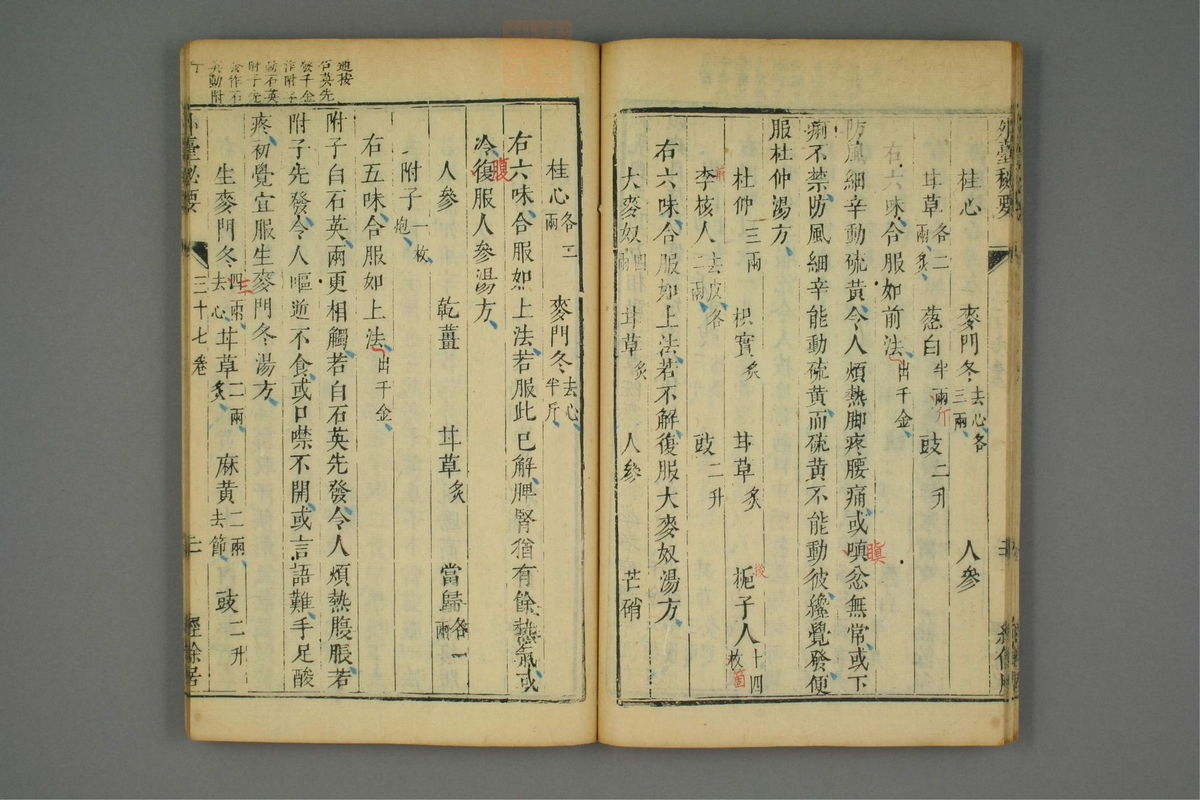 外臺秘要
桂心 麥門冬去心各三兩 人參
甘草各二兩炙 葱白半兩斤 豉二升
右六味合服如前法出千金
防風細辛動硫黃令人煩熱脚疼腰痛或嗔忿無常或下
痢不禁防風細辛能動硫黃而硫黃不能動彼纔覺發便
服杜仲湯方
杜仲三兩 枳實炙 甘草炙 梔子人十四枚
李核人去皮各二兩 豉二升
右六味合服如上法若不解復服大麥奴湯方
大麥奴四兩 甘草炙 人參 芒硝
桂心各二兩 麥門冬去心半斤
右六味合服如上法若服此已解脾腎猶有餘熱氣或
冷復服人參湯方
腹
人參 乾薑 甘草炙 當歸各一兩
附子一枚炮
右五味合服如上法出千金
附子白石英兩更相觸若白石英先發令人煩熱腹脹若
附子先發令人嘔逆不食或口噤不開或言語難手足酸
疼初覺宜服生麥門冬湯方
生麥門冬四兩去心 甘草二兩炙 麻黃二兩去節 豉二升
三
外臺秘要 三十七卷 經餘居
石英先
發千金
作附子
動石英
附子先
發作石
英動附